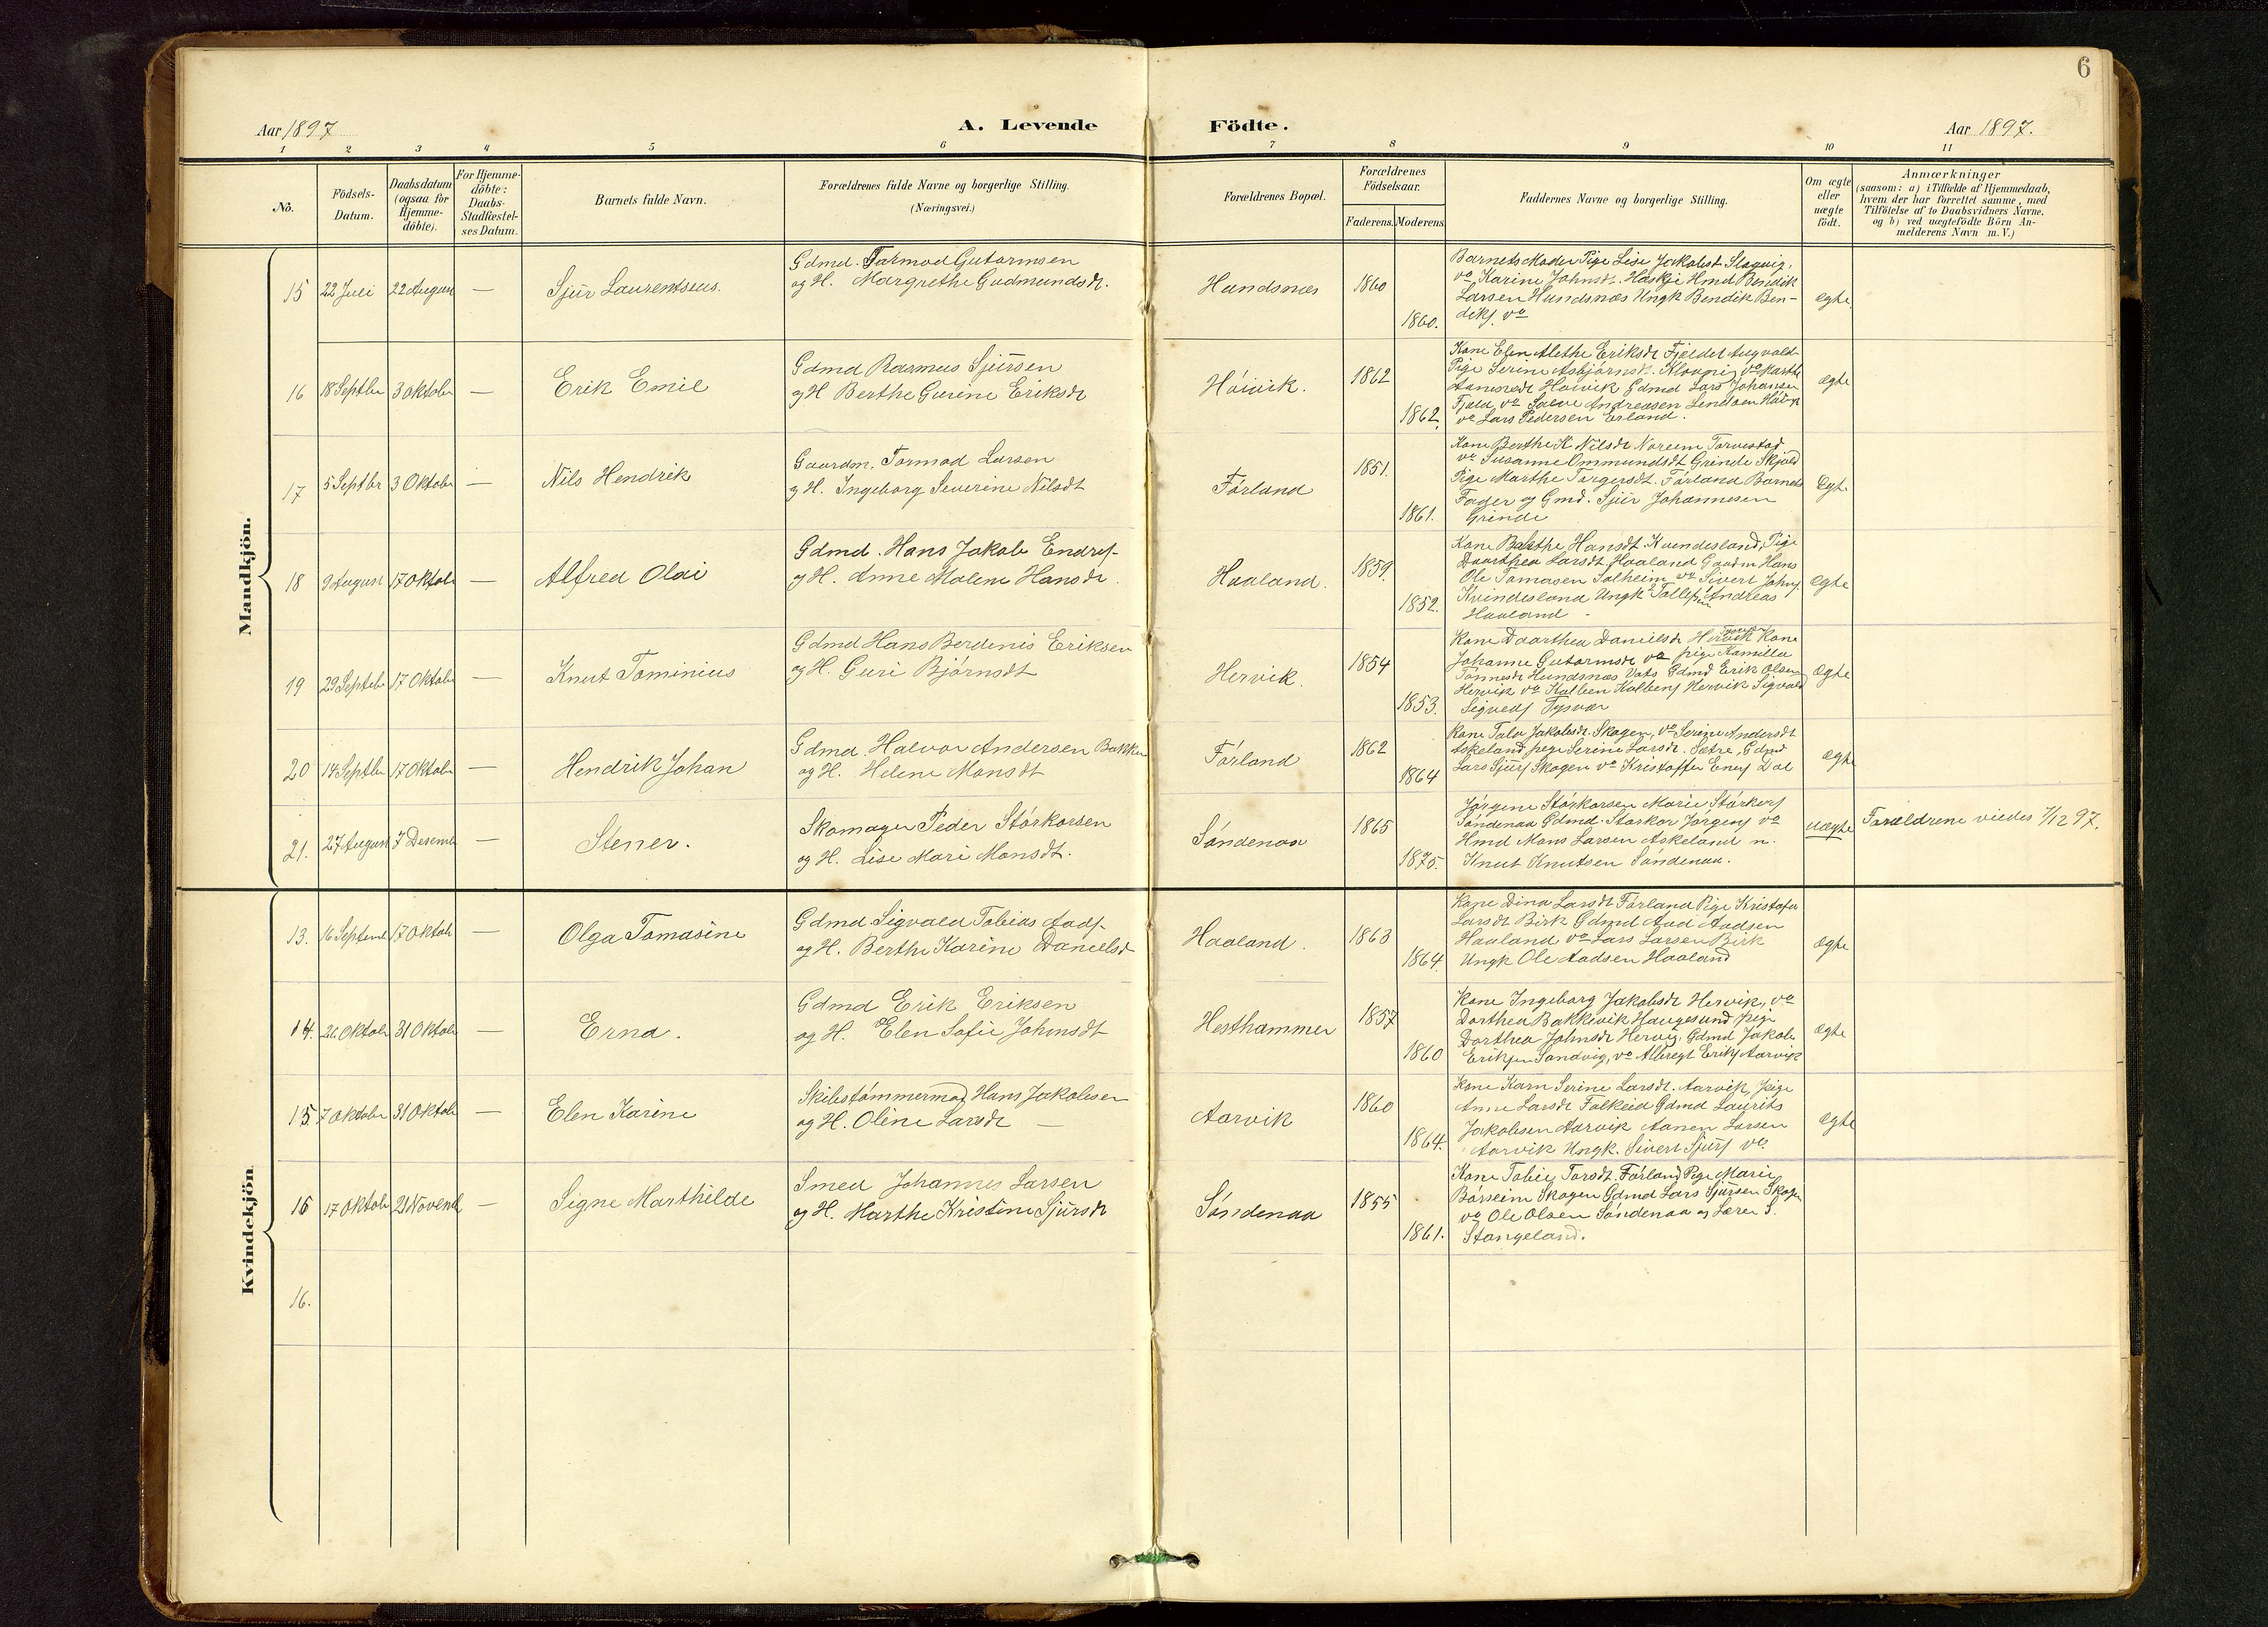 6
Aar 1897
A. Levende
Födte.
Aar 1897.
1 2 3 4 5 6 7 8 9 10 11
No.
Födsels-
Datum.
Daabsdatum
(ogsaa for
Hjemme-
döbte).
For Hjemme-
döbte:
Daabs-
Stadfæstel-
ses Datum.
Barnets fulde Navn.
Forældrenes fulde Navne og borgerlige Stilling.
(Næringsvei.)
Forældrenes Bopæl.
Forældrenes
Födselsaar.
Faderens. Moderens.
Faddernes Navne og borgerlige Stilling.
Om ægte
eller
uægte
födt.
Anmærkninger
(saasom: a) i Tilfælde af Hjemmedaab,
hvem der har forrettet samme, med
Tilföielse af to Daabsvidners Navne,
og b) ved uægtefödte Börn An-
melderens Navn m. V.)
Mandkjön.
15 22 Juli 22 August — Sjur Laurentseus.
Gdmd. Tormod Gutormsen
og H. Margrethe Gudmundsdr.
Hundsnæs 1860 1860.
Barnets Moder Pige Lise Jakobsd Slogvig,
vo Karine Johnsdt. Haskje Hmd Bendik
Larsen Hundsnæs Ungk Bendik Ben-
diks. vo
ægte
16 18 Septbr 3 Oktober — Erik Emil
Gdmd Rasmus Sjursen
og H Berthe Gurine Eriksdr
Höivik. 1862 1862.
Kone Elen Alethe Eriksdr Fjeldet Augvald
Pige Serine Asbjörnsdt. vo Marthe
Höivik Gdmd Lars Johansen
Fjeld vo Andreasen
vo Lars Pedersen Erland.
ægte
17 5 Septbr 3 Oktober — Nils Hendrik
Gaardm. Tormod Larsen
og H. Ingeborg Severine Nilsdt
Förland 1851. 1861.
Kone Berthe K Nilsdr Noreim Torvestad
vo Susanne Ommundsdt Grinde Skjold
Pige Marthe Torgersdt. Förland Barnets
Fader og Gmd. Sjur Johannesen
Grinde
Ægte
18 9 August 17 Oktob — Alfred Olai
Gdmd. Hans Jakob Endres.
og H. Anne Malene Hansdr.
Haaland. 1859. 1852.
Kone Berthe Hansdt. Kvindesland, Pige
Dorthea Larsdt Haaland Gaardm Hans
Ole Tomasen Solheim vo Sivert Johns.
Kvindesland Ungk Tollefsen Andreas
Haaland
ægte
19 29 Septebr 17 Oktober — Knut Tominius
Gdmd Hans Berdinis Eriksen
og H. Guri Björnsdt
Hervik. 1854 1853.
Kone Daarthea Danielsdr Hervik Kone
Johanne Gutormsdr vo pige Kamilla
Tönnesdr Hundsnæs Vats Gdmd Erik Olsen
Hervik vo Kolben Kolbens Hervik Sigvald
Sigveds Tysvær
ægte
20 14 Septbr 17 Oktober — Hendrik Johan
Gdmd. Halvor Andersen Bakke
og H. Helene Monsdt
Förland 1862 1864
Kone Tala Jakobsdr. Skogen, vo Serine Andersdt
Askeland pige Serine Larsdt. Sætre, Gdmd
Lars Sjurs Skogen vo Kristoffer Enes Dal
ægte
21. 27 August 7 Desemb — Stener.
Skomager Peder Störkorsen
og H. Lise Mari Monsdt.
Söndenaa 1865 1875.
Jörgine Störkorsen Marie Störkers
Söndenaa Gdmd. Störkor Jörgens vo
Hmd Mons Larsen Askeland n.
Knut Knutsen Söndenaa.
uægte
Forældrene viedes 7/12 97.
Kvindekjön
13. 16 Septemb 17 Oktob — Olga Tomasine
Gdmd. Sigvald Tobias Aads.
og H. Berthe Karine Danielsd
Haaland. 1863 1864.
Kone Dina Larsdt Förland Pige Kristofa
Larsdt Birk Gdmd Aad Aadsen
Haaland vo Lars Larsen Birk
Ungk Ole Aadsen Haaland
ægte
14. 26 Oktober 31 Oktob — Erna.
Gdmd Erik Eriksen
og H. Elen Sofie Johnsdt
Hesthammer 1857 1860
Kone Ingeborg Jakobsdr Hervik, vo
Dorthea Bakkevik Haugesund pige
Dorthea Johnsdr Hervig, Gdmd Jakob
Eriksen Sandvig, vo Albregt Eriks Aarvik
ægte
15. 7 Oktober 31 Oktob — Elen Karine
Skibstömmermad Hans Jakobsen
og H. Oline Larsdr —
Aarvik 1860 1864.
Kone Karn Serine Larsdt. Aarvik, pige
Anne Larsdt Falkeid Gdmd Laurits
Jakobsen Aarvik Aanen Larsen
Aarvik Ungk. Sivert Sjurs vo
ægte
16 17 Oktob 21 Novemb — Signe Marthilde
Smed Johannes Larsen
og H. Marthe Kristine Sjursdr
Söndenaa 1855 1861.
Kone Tobie Torsdt. Förland Pige Marie
Börseim Skogen Gdmd Lars Sjursen Skogen
vo Ole Olsen Söndenaa og Lærer S.
Stangeland.
16.